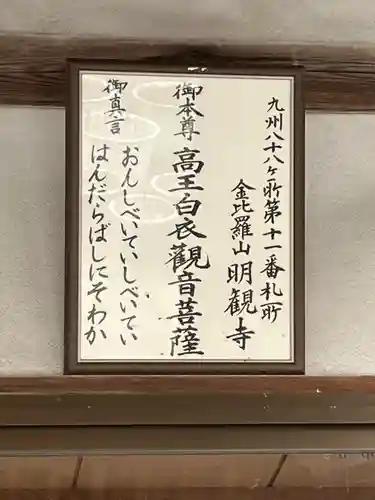 九州八十八ヶ所第十一番札所
金比羅山 明観寺
御本尊 高王白衣觀音菩薩
御真言 おんしべいていしべいてい
はんだらばしにそわか